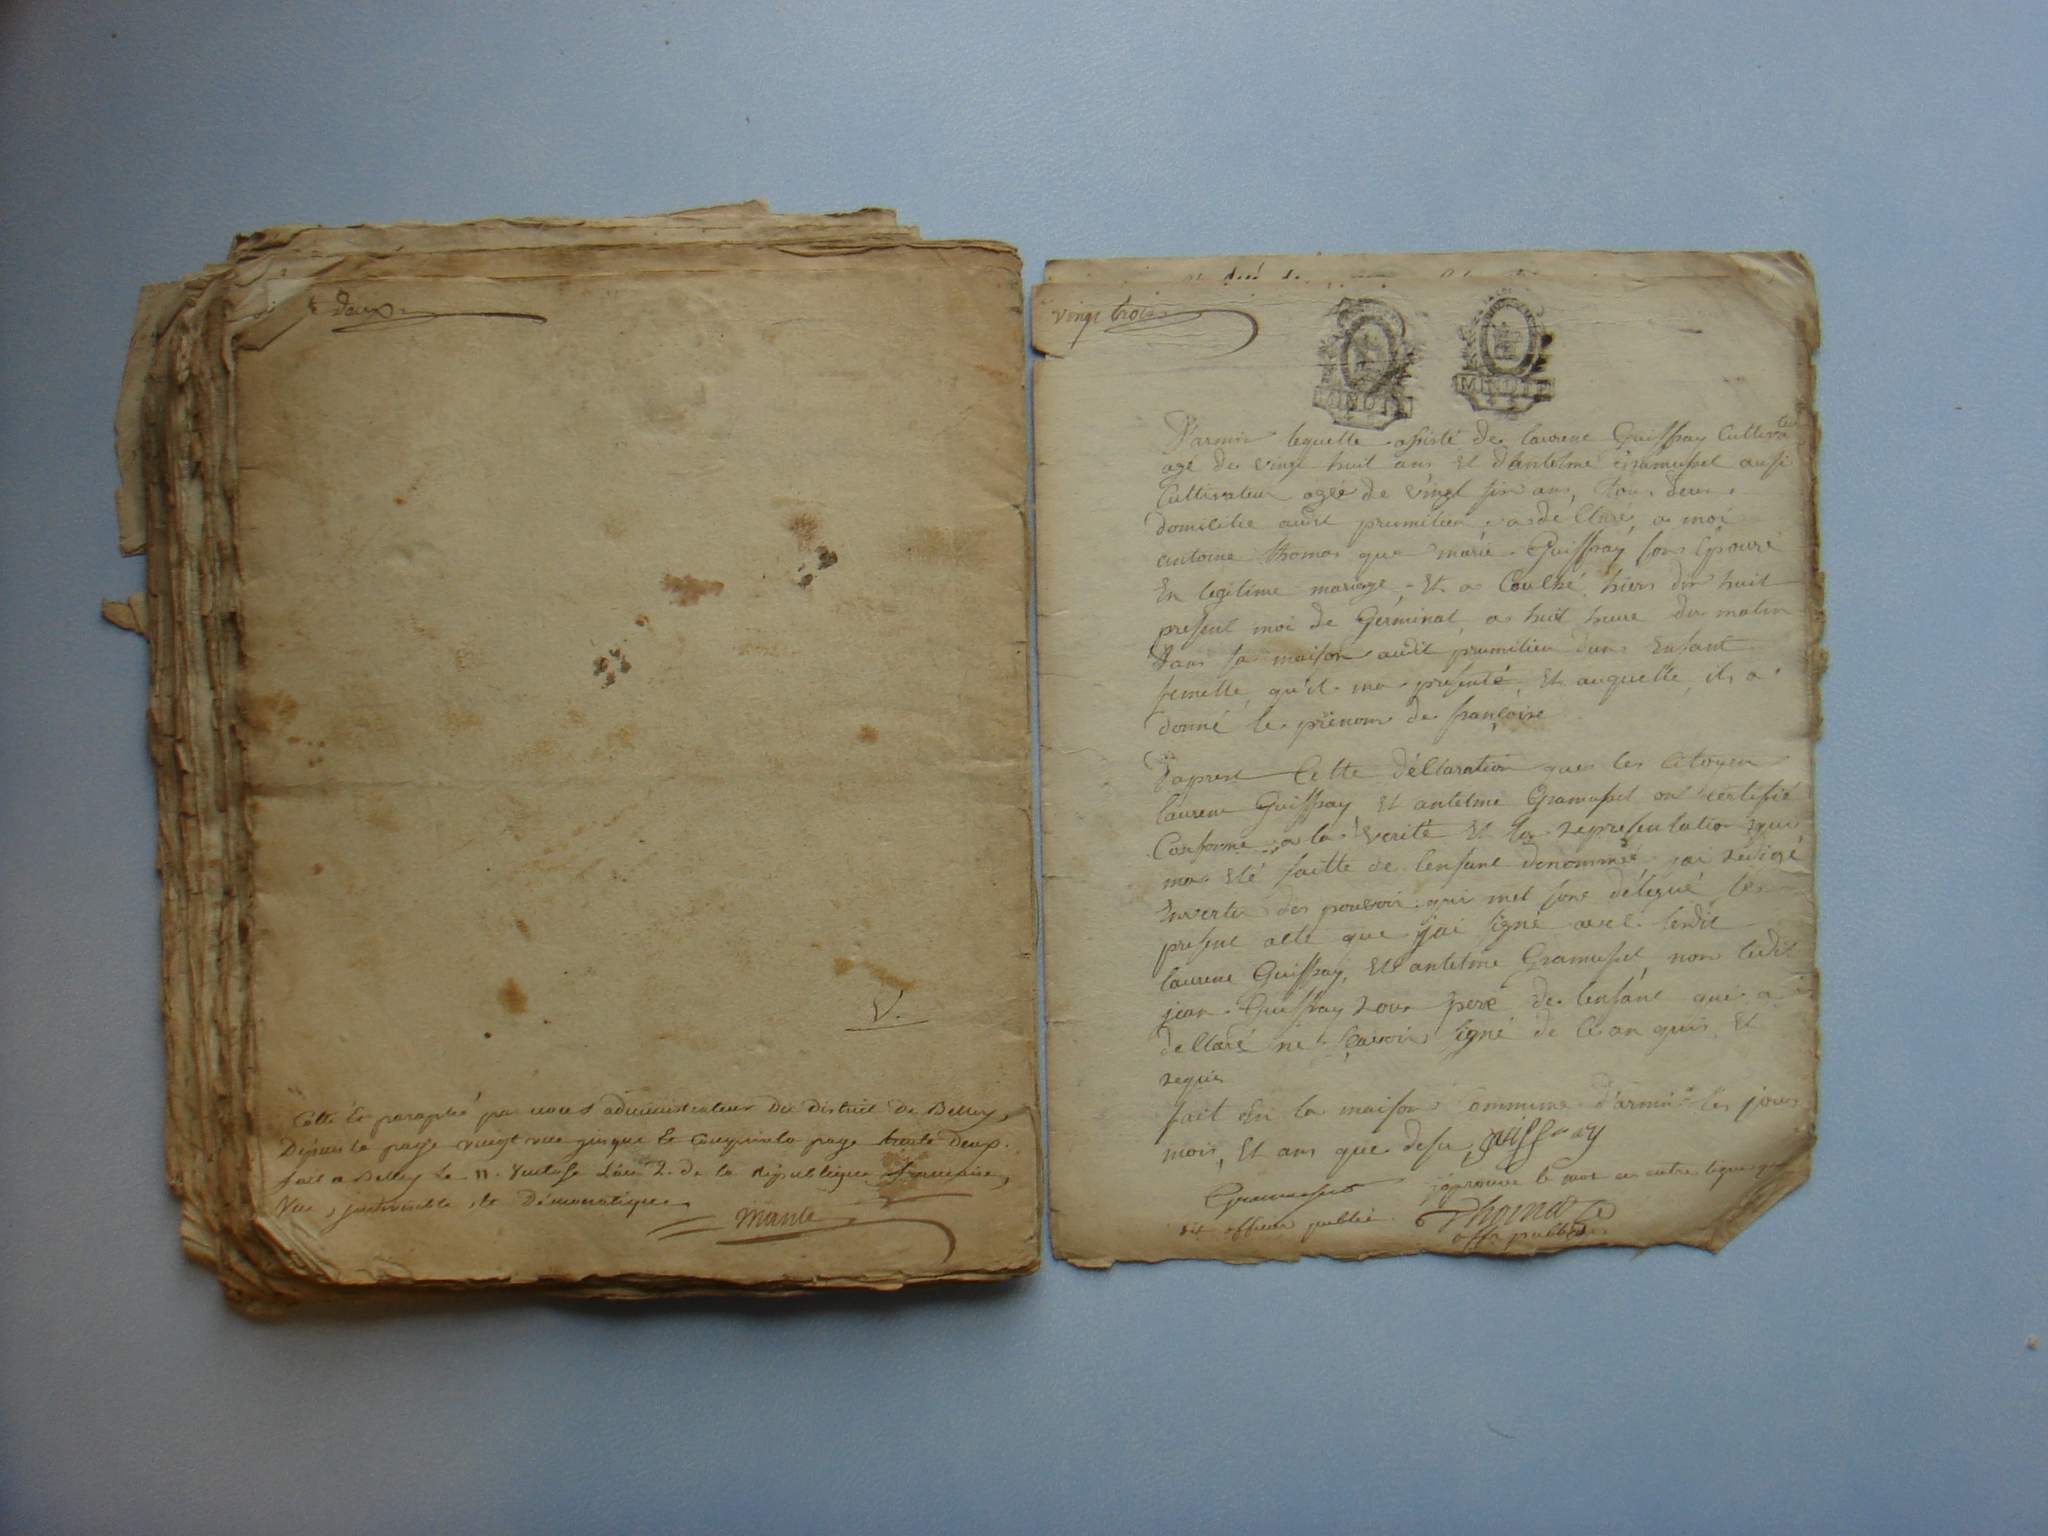 Deux
Cotté et paraphé par nous administrateur du District de Belley
Depuis la page vingt une jusque et compris la page trente deux.
fait a Belley le 11 Ventose L'an 2. de la République francaise,
Une, indivisible et Démocratique
Mante
V.
vingt trois
MINUTE
MINUTE
D'armix lequelle assisté de laurent Guiffray Cultivateur
agé de vingt huit ans et d'antelme Gramusset aussi
Cultivateur agée de vingt six ans, tous deux
domicilie audit prumilieu a declaré, a moi
antoine thomas que marie Guiffray son Epouse
En legitime mariage, Et a Couché hiers dix huit
present moi de Germinal, a huit heure du matin
Dans sa maison audit prumilieu d'une Enfant
femelle, qu'il ma presenté, Et auquelle, il a
donné le prénom de françoise
D'apres Cette déclaration que les Citoyen
laurent Guiffray Et antelme Gramusset ont certifié
Conforme a la verité Et la representation qui
ma Eté faitte de lenfant denommé jai redigé
Envertu des pouvoir qui met sont délégué, le
present acte que j'ai signé avec ledit
laurent Guiffray, Et antelme Gramusset, non ledit
jean Guiffray pere de lenfant que a
declaré ne sçavoir signé de Et
requis
fait En la maison Commune d'armix les jour
mois, Et ans que desu, Guiffray
Gramusset japrouve le mot en entre ligne
dit officier public Thomas
offr public